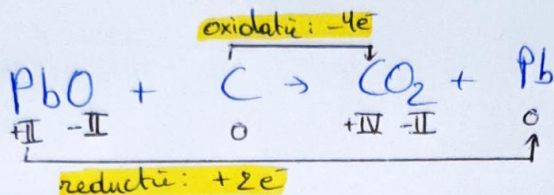 oxidatie: -4e⁻
PbO + C → CO₂ + Pb
+II -II 0 +IV -II 0
reductie: +2e⁻